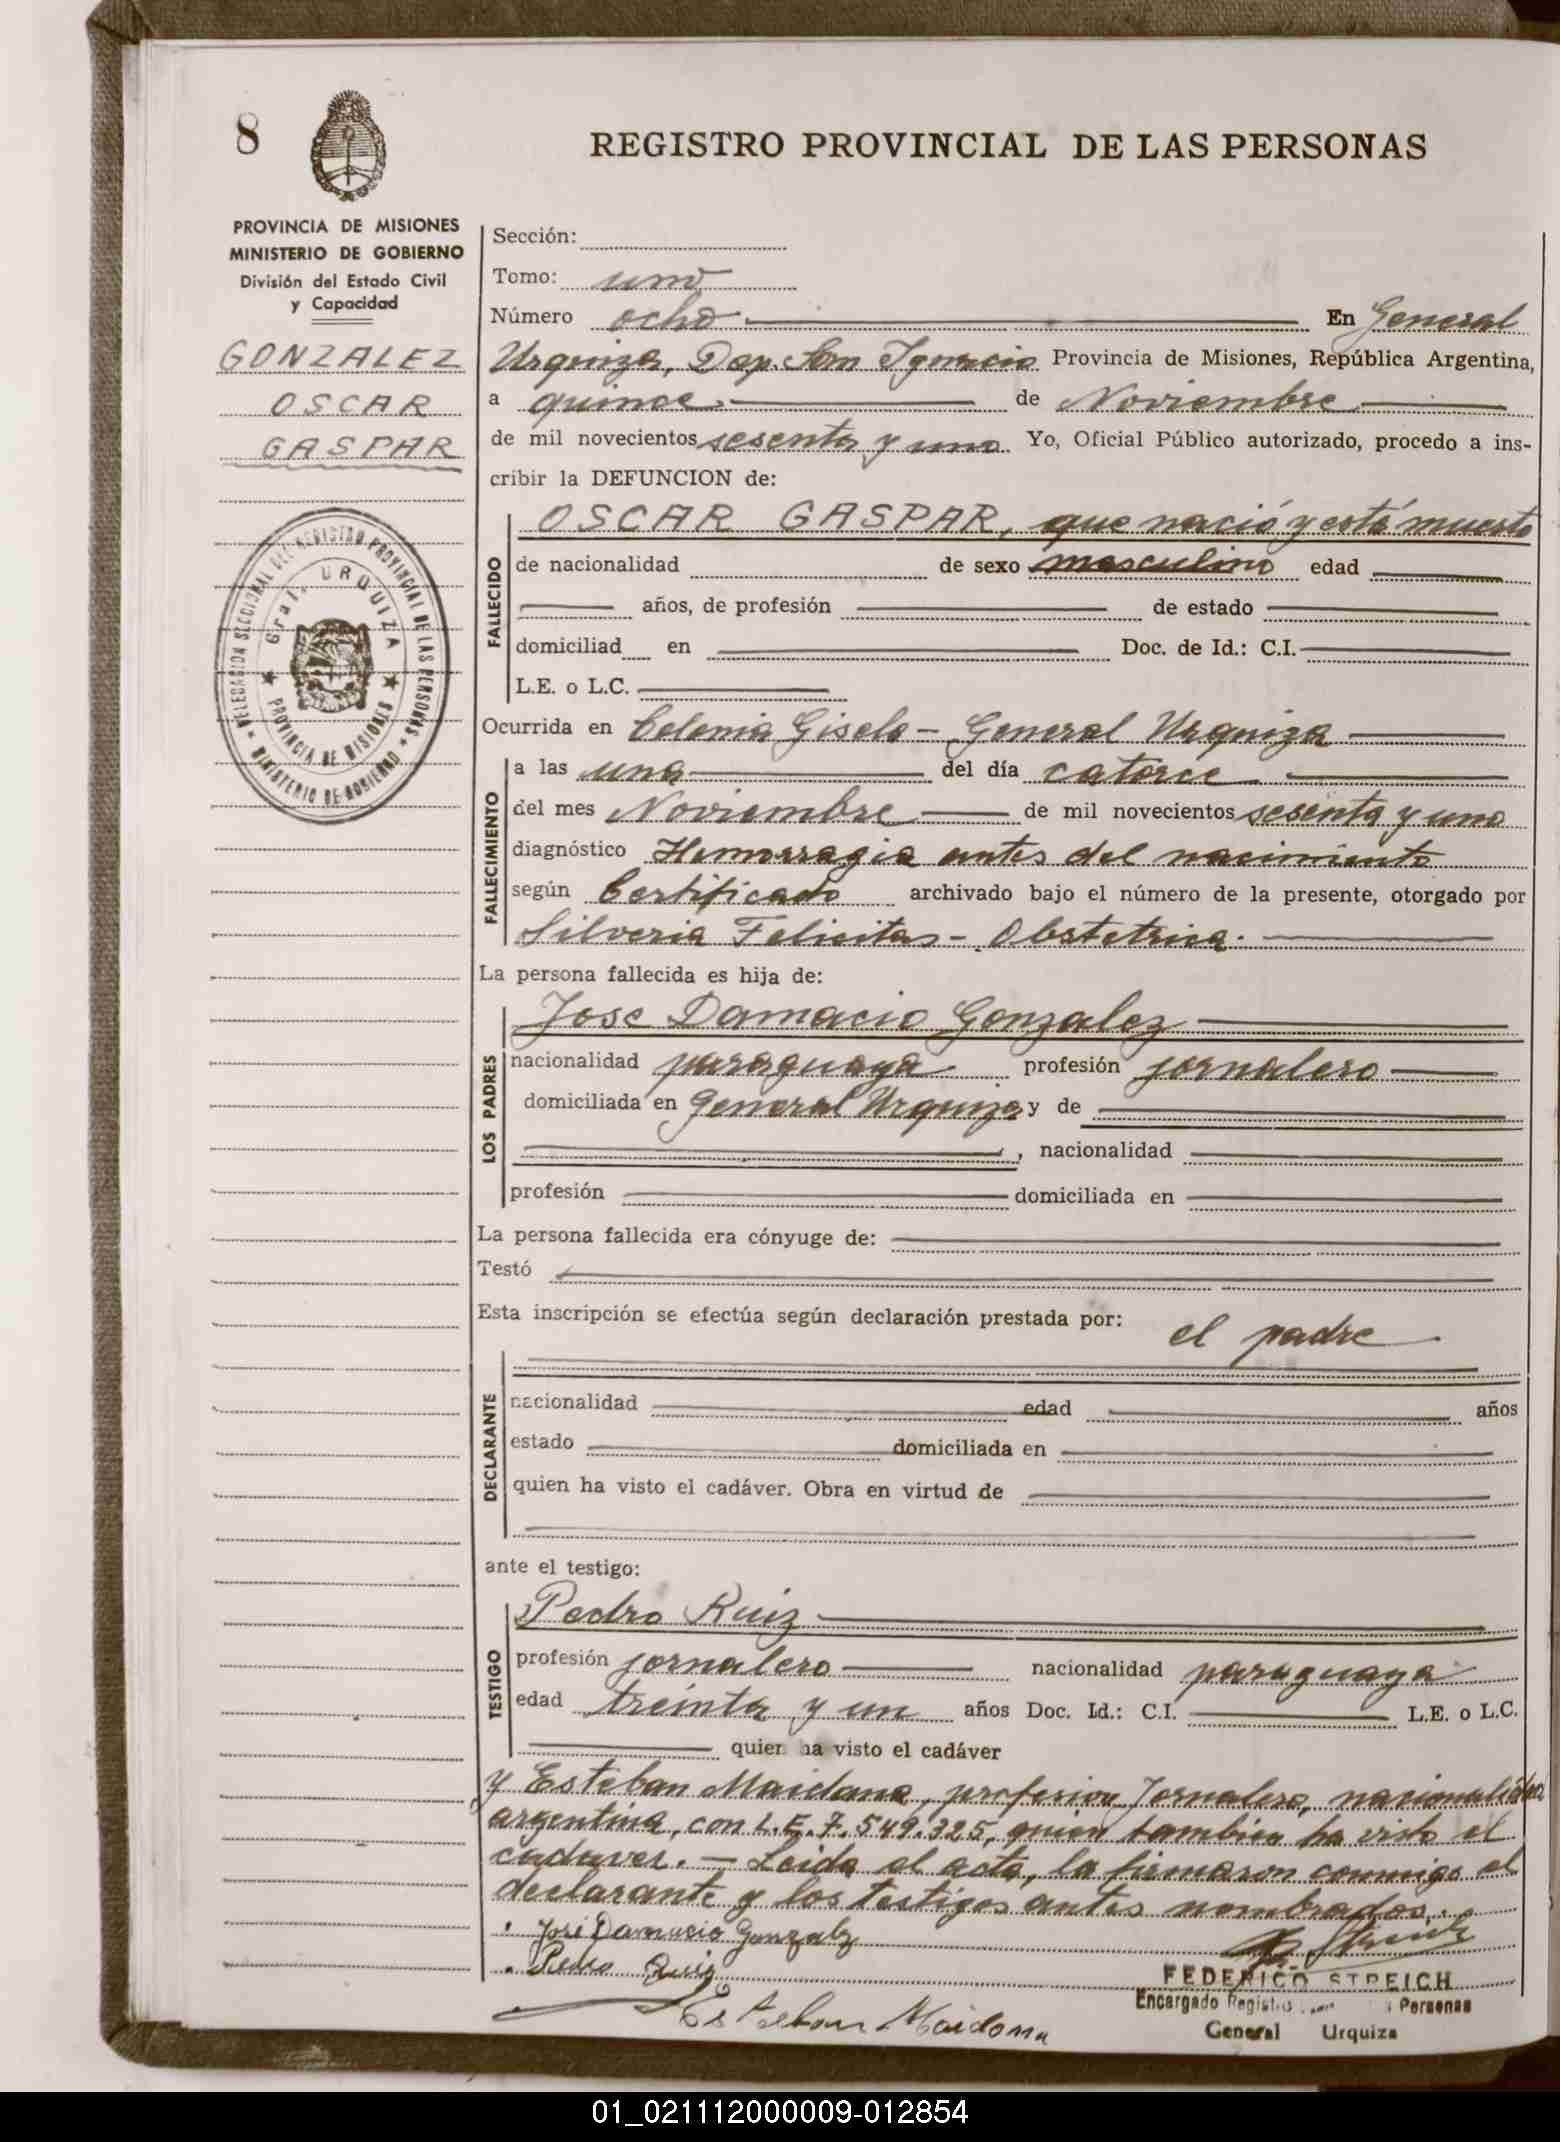 8
REGISTRO PROVINCIAL DE LAS PERSONAS
PROVINCIA DE MISIONES
MINISTERIO DE GOBIERNO
División del Estado Civil
y Capacidad
GONZALEZ
OSCAR
GASPAR
DELEGACION SECCIONAL DEL REGISTRO PROVINCIAL DE LAS PERSONAS
MINISTERIO DE GOBIERNO
Gral. URQUIZA
PROVINCIA DE MISIONES
Sección:
Tomo: uno
Número ocho En General
Urquiza, Dep. San Ignacio Provincia de Misiones, República Argentina,
a quince de Noviembre
de mil novecientos sesenta y uno Yo, Oficial Público autorizado, procedo a ins-
cribir la DEFUNCION de:
FALLECIDO
OSCAR GASPAR, que nació y está muerto
de nacionalidad de sexo masculino edad
años, de profesión de estado
domiciliad en Doc. de Id.: C.I.
L.E. o L.C.
Ocurrida en Colonia Gisela - General Urquiza
FALLECIMIENTO
a las una del día catorce
del mes Noviembre de mil novecientos sesenta y uno
diagnóstico Hemorragia antes del nacimiento
según Certificado archivado bajo el número de la presente, otorgado por
Silveria Felicitas - Obstetrica.
La persona fallecida es hija de:
LOS PADRES
Jose Damacio Gonzalez
nacionalidad paraguaya profesión jornalero
domiciliada en General Urquiza y de
, nacionalidad
profesión domiciliada en
La persona fallecida era cónyuge de:
Testó
Esta inscripción se efectúa según declaración prestada por: el padre
DECLARANTE
nacionalidad edad años
estado domiciliada en
quien ha visto el cadáver. Obra en virtud de
ante el testigo:
TESTIGO
Pedro Ruiz
profesión jornalero nacionalidad paraguaya
edad treinta y un años Doc. Id.: C.I. L.E. o L.C.
quien ha visto el cadáver
y Esteban Maidana, profesion Jornalero, nacionalidad
argentina, con L.E. 7.549.325, quien tambien ha visto el
cadaver. - Leida el acta, la firmaron conmigo el
declarante y los testigos antes nombrados.
José Damacio Gonzalez
Pedro Ruiz
Esteban Maidana
FEDERICO STREICH
Encargado Registro Personas
General Urquiza
01_021112000009-012854